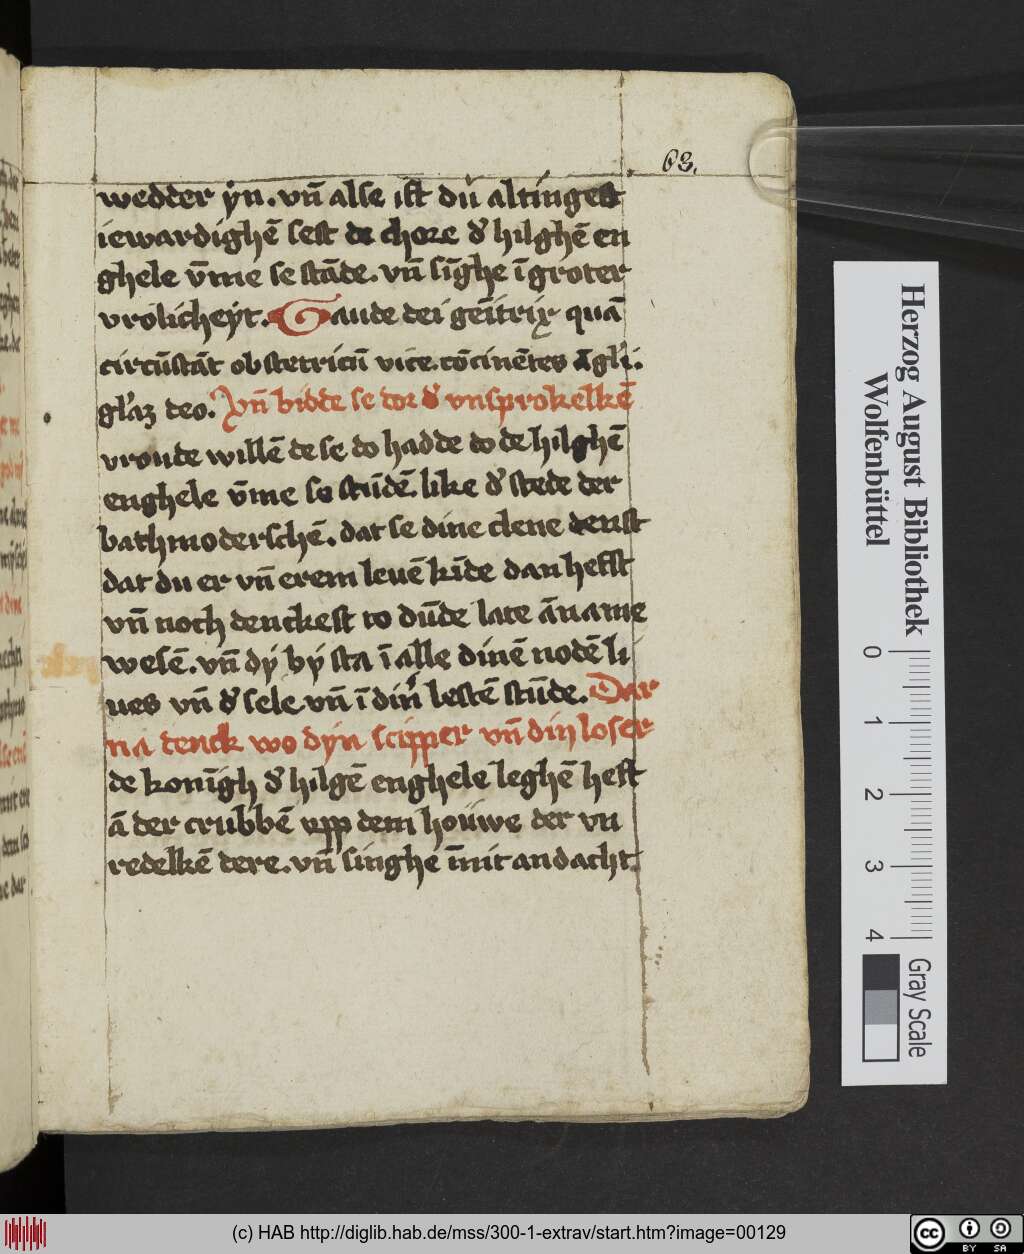 63.
wedder yn. vn̄ alse ist du altingest
iewardighē sest de chore d̾ hilghē en
ghele v̄me se stāde. vn̄ sīghe ī groter
vrolicheyt. Gaude dei gēitrix quā
circūstāt obstetricū vice. cōcinētes āgl̾i.
gl̾aȝ deo. Vn̄ bidde se dor d̾ vnsprokelkē
vroude willē de se do hadde do de hilghē
enghele v̄me se stūdē. like d̾ stede der
bathmoderschē. dat se dine clene denst
dat du er vn̄ erem leuē kīde dan hefst
vn̄ noch denckest to dūde late āname
wesē. vn̄ dy by sta ī alle dinē nodē li
ues vn̄ d̾ sele vn̄ ī din̾ lestē stūde. Dar
na denck wo dyn scipper vn̄ din loser
de konīgh d̾ hilgē enghele leghē heft
ā der crubbē upp dem houwe der vn
redelkē dere. vn̄ singhe īmit andacht.
Herzog August Bibliothek
Wolfenbüttel
0 1 2 3 4
Gray Scale
(c) HAB http://diglib.hab.de/mss/300-1-extrav/start.htm?image=00129
cc BY SA